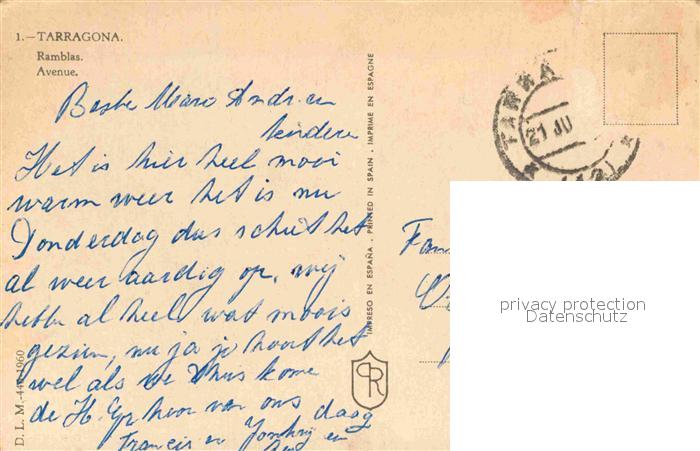 1.—TARRAGONA.
Ramblas.
Avenue.
Beste Andr. en
kinderen
Het is hier heel mooi
warm weer het is nu
Donderdag dus schiet het
al weer aardig op, wij
hebben al heel wat moois
gezien, nu ja je hoort het
wel als we thuis kome
de van ons daag
Francis en en
D. L. M.-
IMPRESO EN ESPAÑA . PRINTED IN SPAIN . IMPRIME EN ESPAGNE
PR
TARRA
21 JU
Fam
privacy protection
Datenschutz